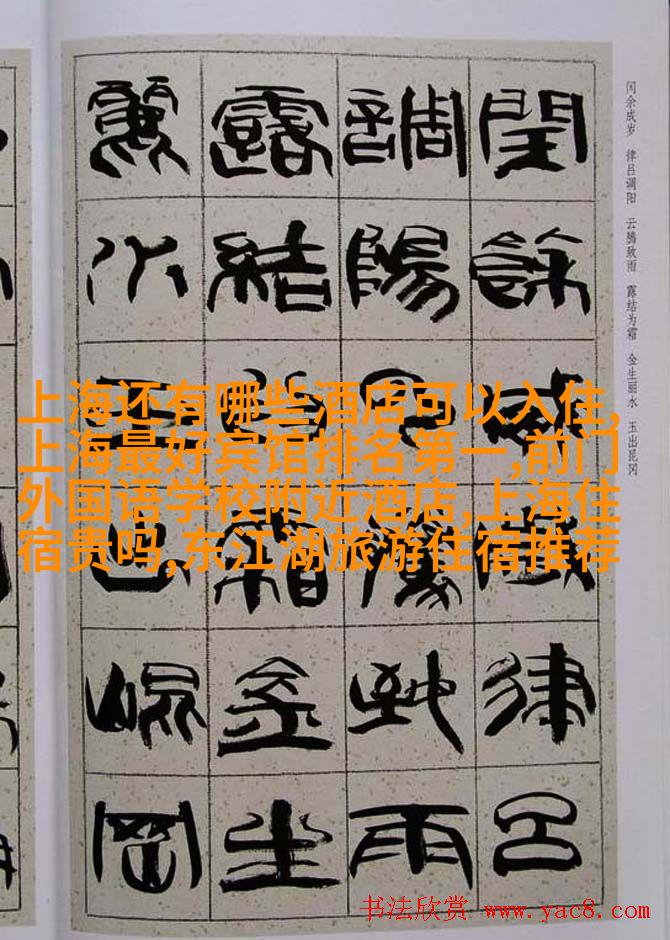 闰余成岁 律吕调阳 云腾致雨 露结为霜 金生丽水 玉出昆冈
閏餘成歲律呂
調陽云騰致雨
露結為霜金生
麗水玉出崐岡
上海还有哪些酒店可以入住,
上海最好宾馆排名第一,前门
外国语学校附近酒店,上海住
宿贵吗,东江湖旅游住宿推荐
书法欣赏 www.yac8.com